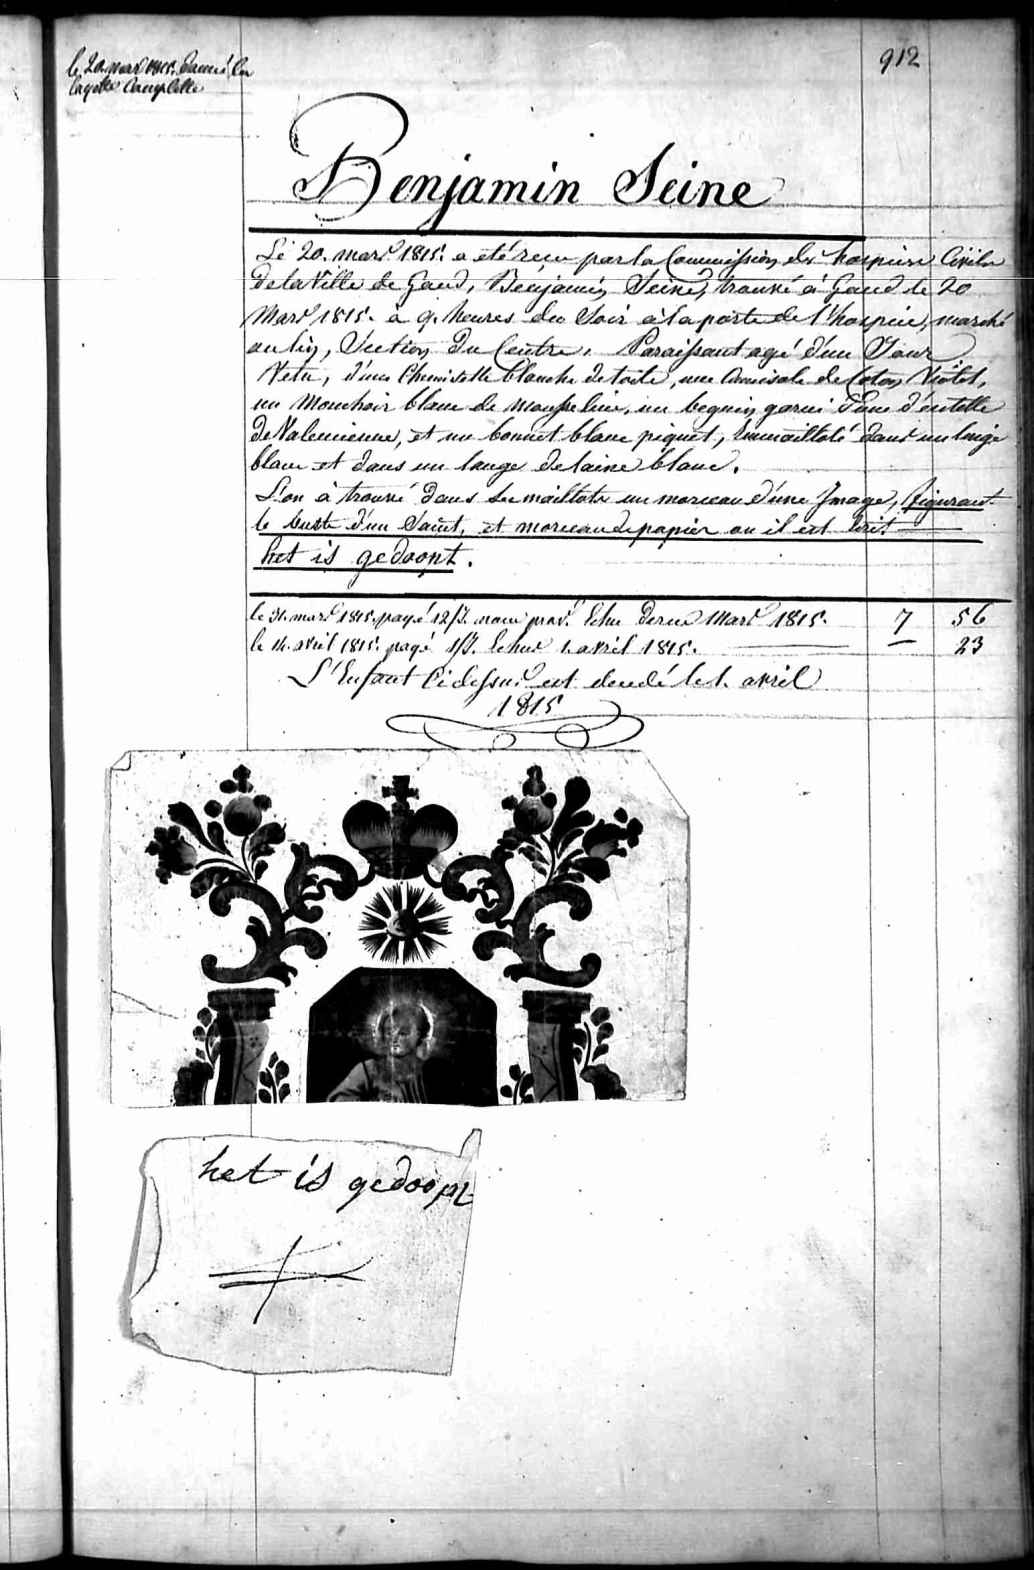 912
le 20 mars 1815. donné la
layette complette
Benjamin Seine
Le 20. mars 1815. a été reçu par la Commission des hospices Civils
de la Ville de Gand, Benjamin Seine, trouvé à Gand le 20
Mars 1815. a 9. heures du Soir à la porte de l'hospice, marché
au lin, Section du Centre. Paraissant agé d'un Jour
Vetu, d'une Chemisette blanche de toile, une Camisole de Coton Violet,
un Mouchoir blanc de mousseline, un beguin garni d'une d'entelle
de Valencienne, et un bonnet blanc piquet, Emmailloté dans un lange
blanc et dans un lange de laine blanc.
L'on à trouvé dans les maillots un morceau d'une Image, figurant
le buste d'un Saint, et morceau de papier ou il est Ecrit
het is gedoopt.
le 31. mars 1815. payé 12 js. nour. prov. Echu dernr Mars 1815. 7 56
le 14. avril 1815. payé 1 js. Echu 1. avril 1815. 23
L'Enfant Ci dessus est decedé le 1. avril
1815
het is gedoopt